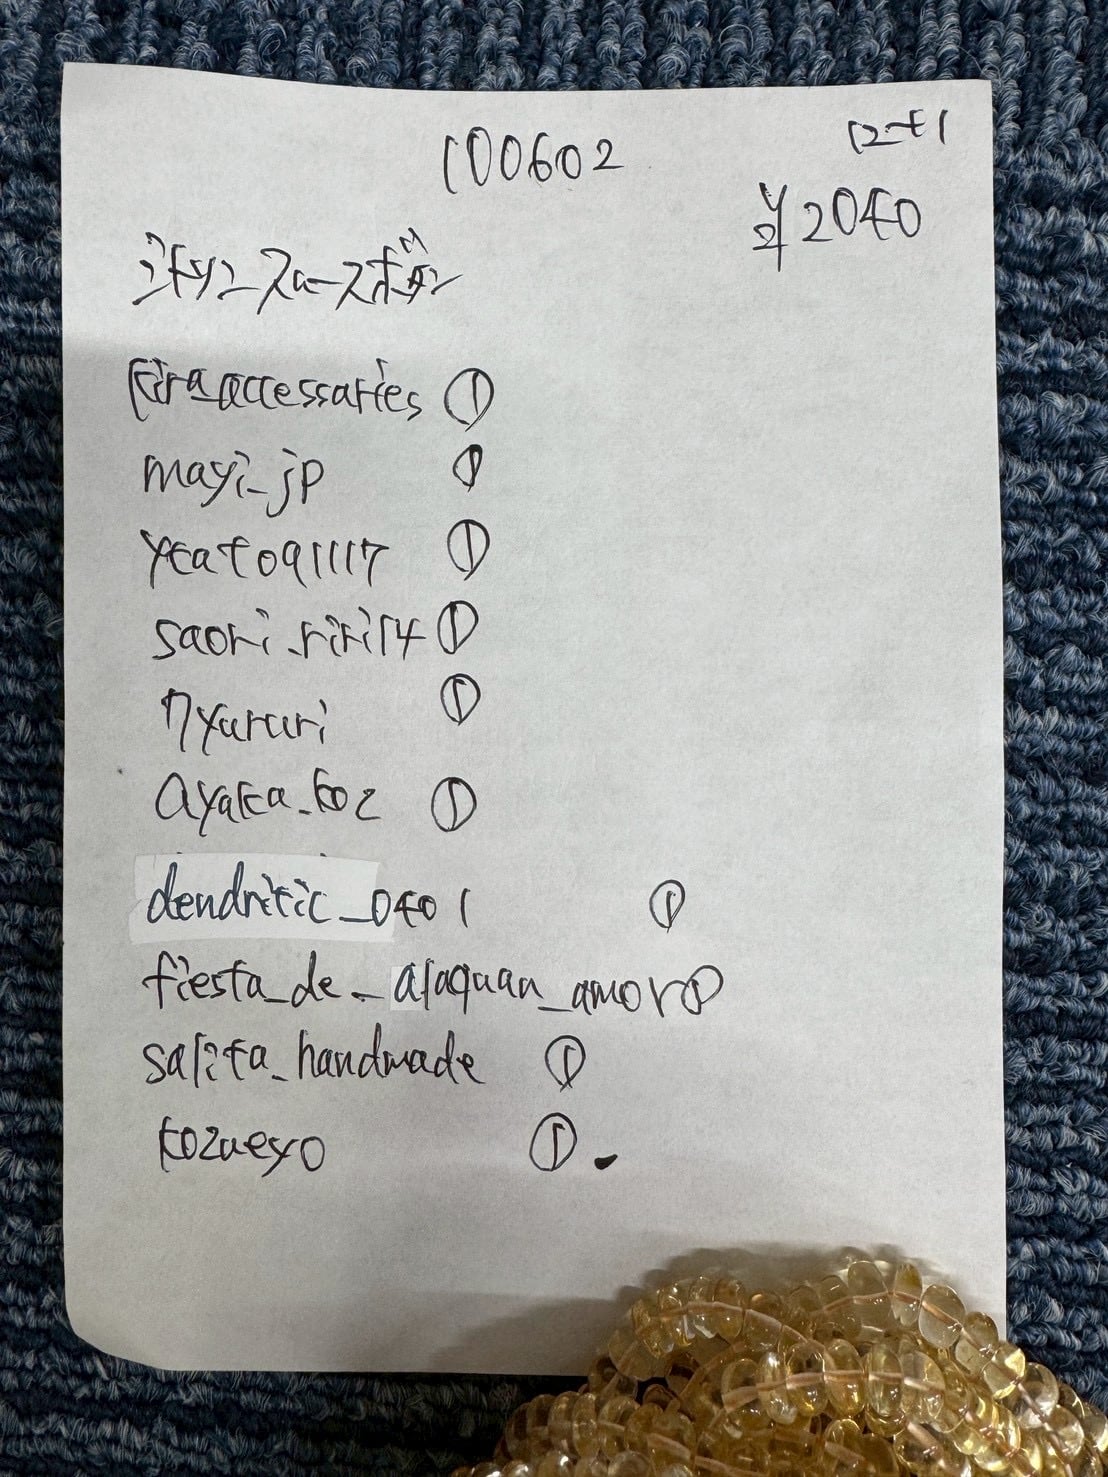 100602
12-E1
¥2040
シトリン スムースボタン
kira_accessaries ①
mayi_jp ①
ykato91117 ①
saori_riri14 ①
nyaruri ①
ayaka_koz ①
dendritic_0401 ①
fiesta_de_alaquan_amor ①
salita_handmade ①
kozueyo ①.